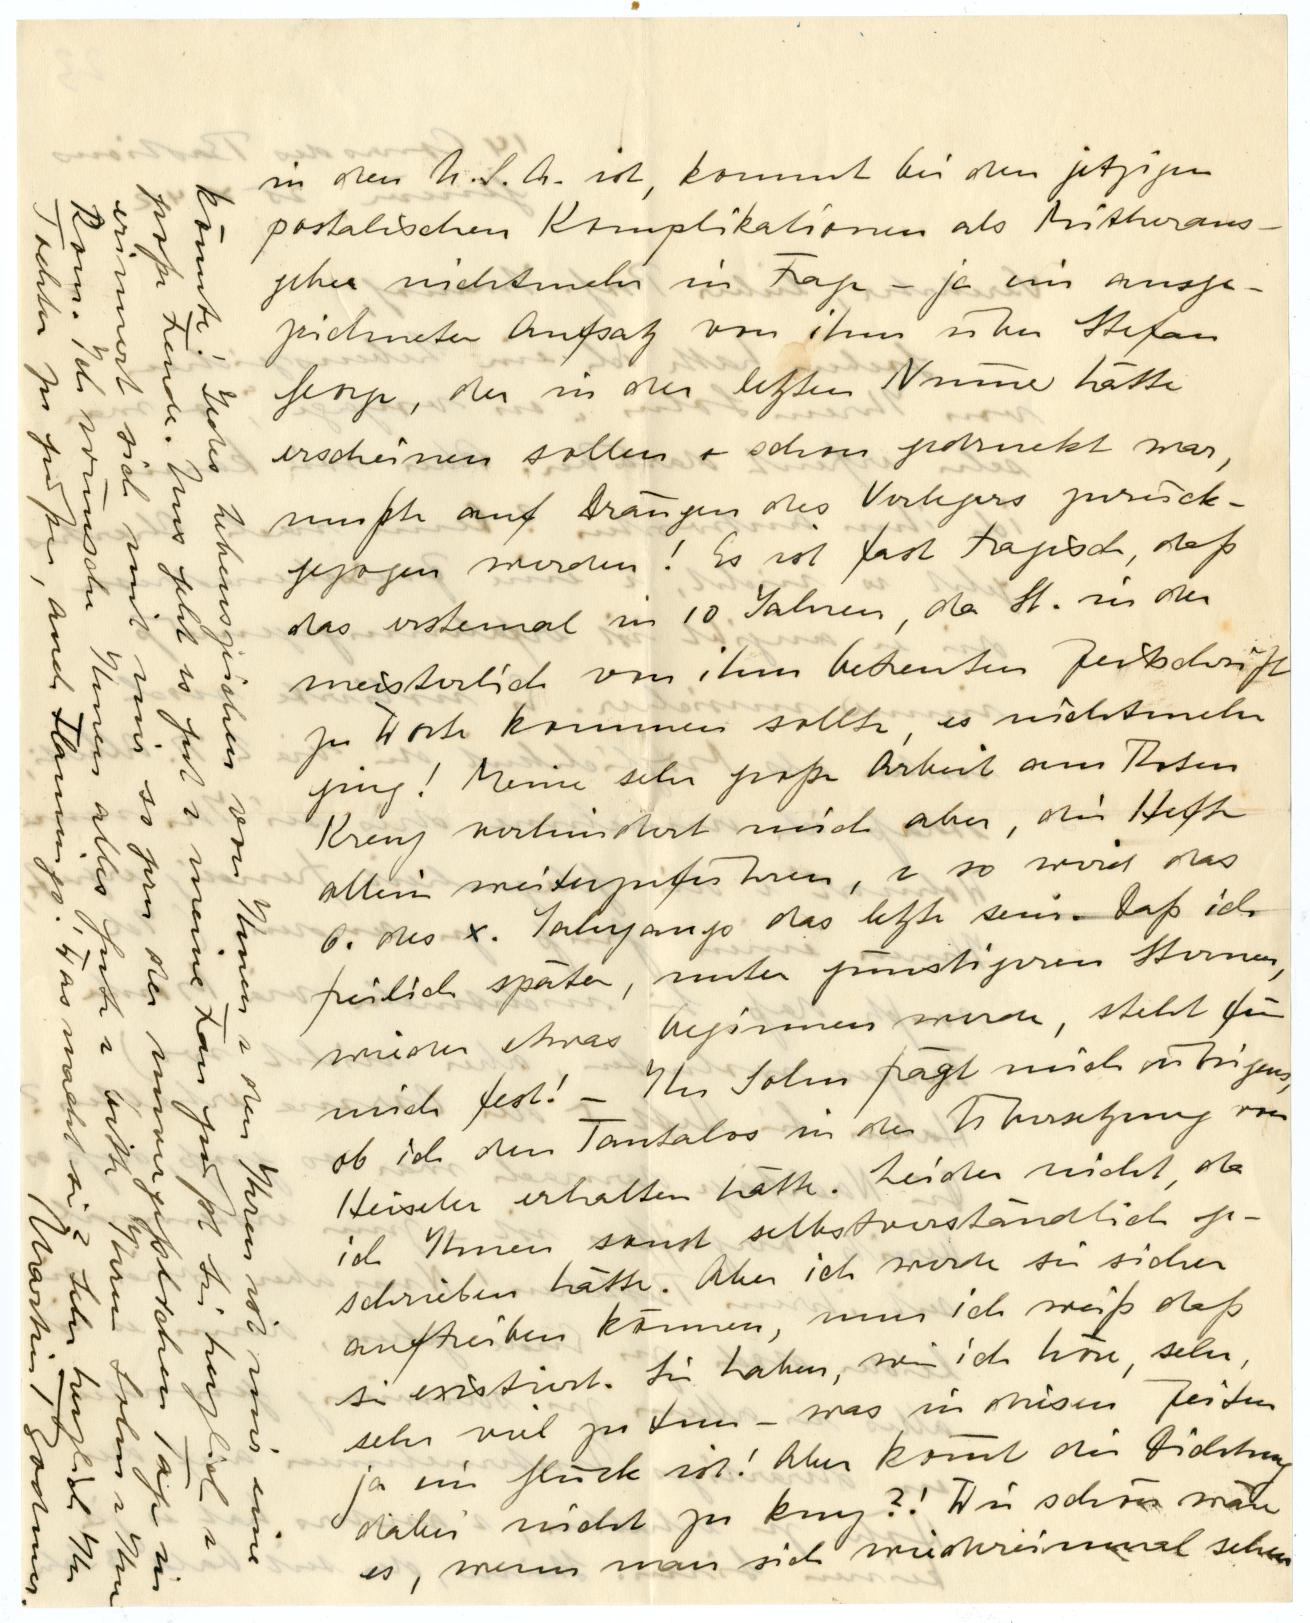 in den U.S.A. ist, kommt bei den jetzigen
postalischen Komplikationen als Mitheraus-
geber nichtmehr in Frage – ja ein ausge-
zeichneter Aufsatz von ihm über Stefan
George, der in der letzten Num̄er hätte
erscheinen sollen + schon gedruckt war,
mußte auf Drängen des Verlegers zurück-
gezogen werden! Es ist fast tragisch, daß
das erstemal in 10 Jahren, da St. in der
meisterlich von ihm betreuten Zeitschrift
zu Worte kommen sollte, es nichtmehr
ging! Meine sehr große Arbeit am Rosen
Kreuz verhindert mich aber, die Hefte
allein weiterzuführen, u so wird das
6. des X. Jahrgangs das letzte sein. Daß ich
freilich später, unter günstigeren Sternen,
wieder etwas beginnen werde, steht für
mich fest! – Ihr Sohn frägt mich übrigens,
ob ich den Tantalos in der Übersetzung von
Heiseler erhalten hätte. Leider nicht, da
ich Ihnen sonst selbstverständlich ge-
schrieben hätte. Aber ich werde sie sicher
auftreiben können, nun ich weiß daß
sie existiert. Sie haben, wie ich höre, sehr,
sehr viel zu tun – was in diesen Zeiten
ja ein Glück ist! Aber kom̄t die Dichtung
dabei nicht zu kurz?! Wie schön wäre
es, wenn man sich wiedereinmal sehen
könnte! Jedes Lebenszeichen von Ihnen u den Ihren ist mir eine
große Freude. Uns geht es gut u meine Frau grüßt Sie herzlich u
erinnert sich mit mir so gern der unvergeßlichen Tage in
Rom. Ich wünsche Ihnen alles Gute u bitte Ihren Sohn u Ihre
Tochter zu grüßen, auch Flamingo. Was macht sie? Sehr herzlich Ihr
Martin Bodmer.